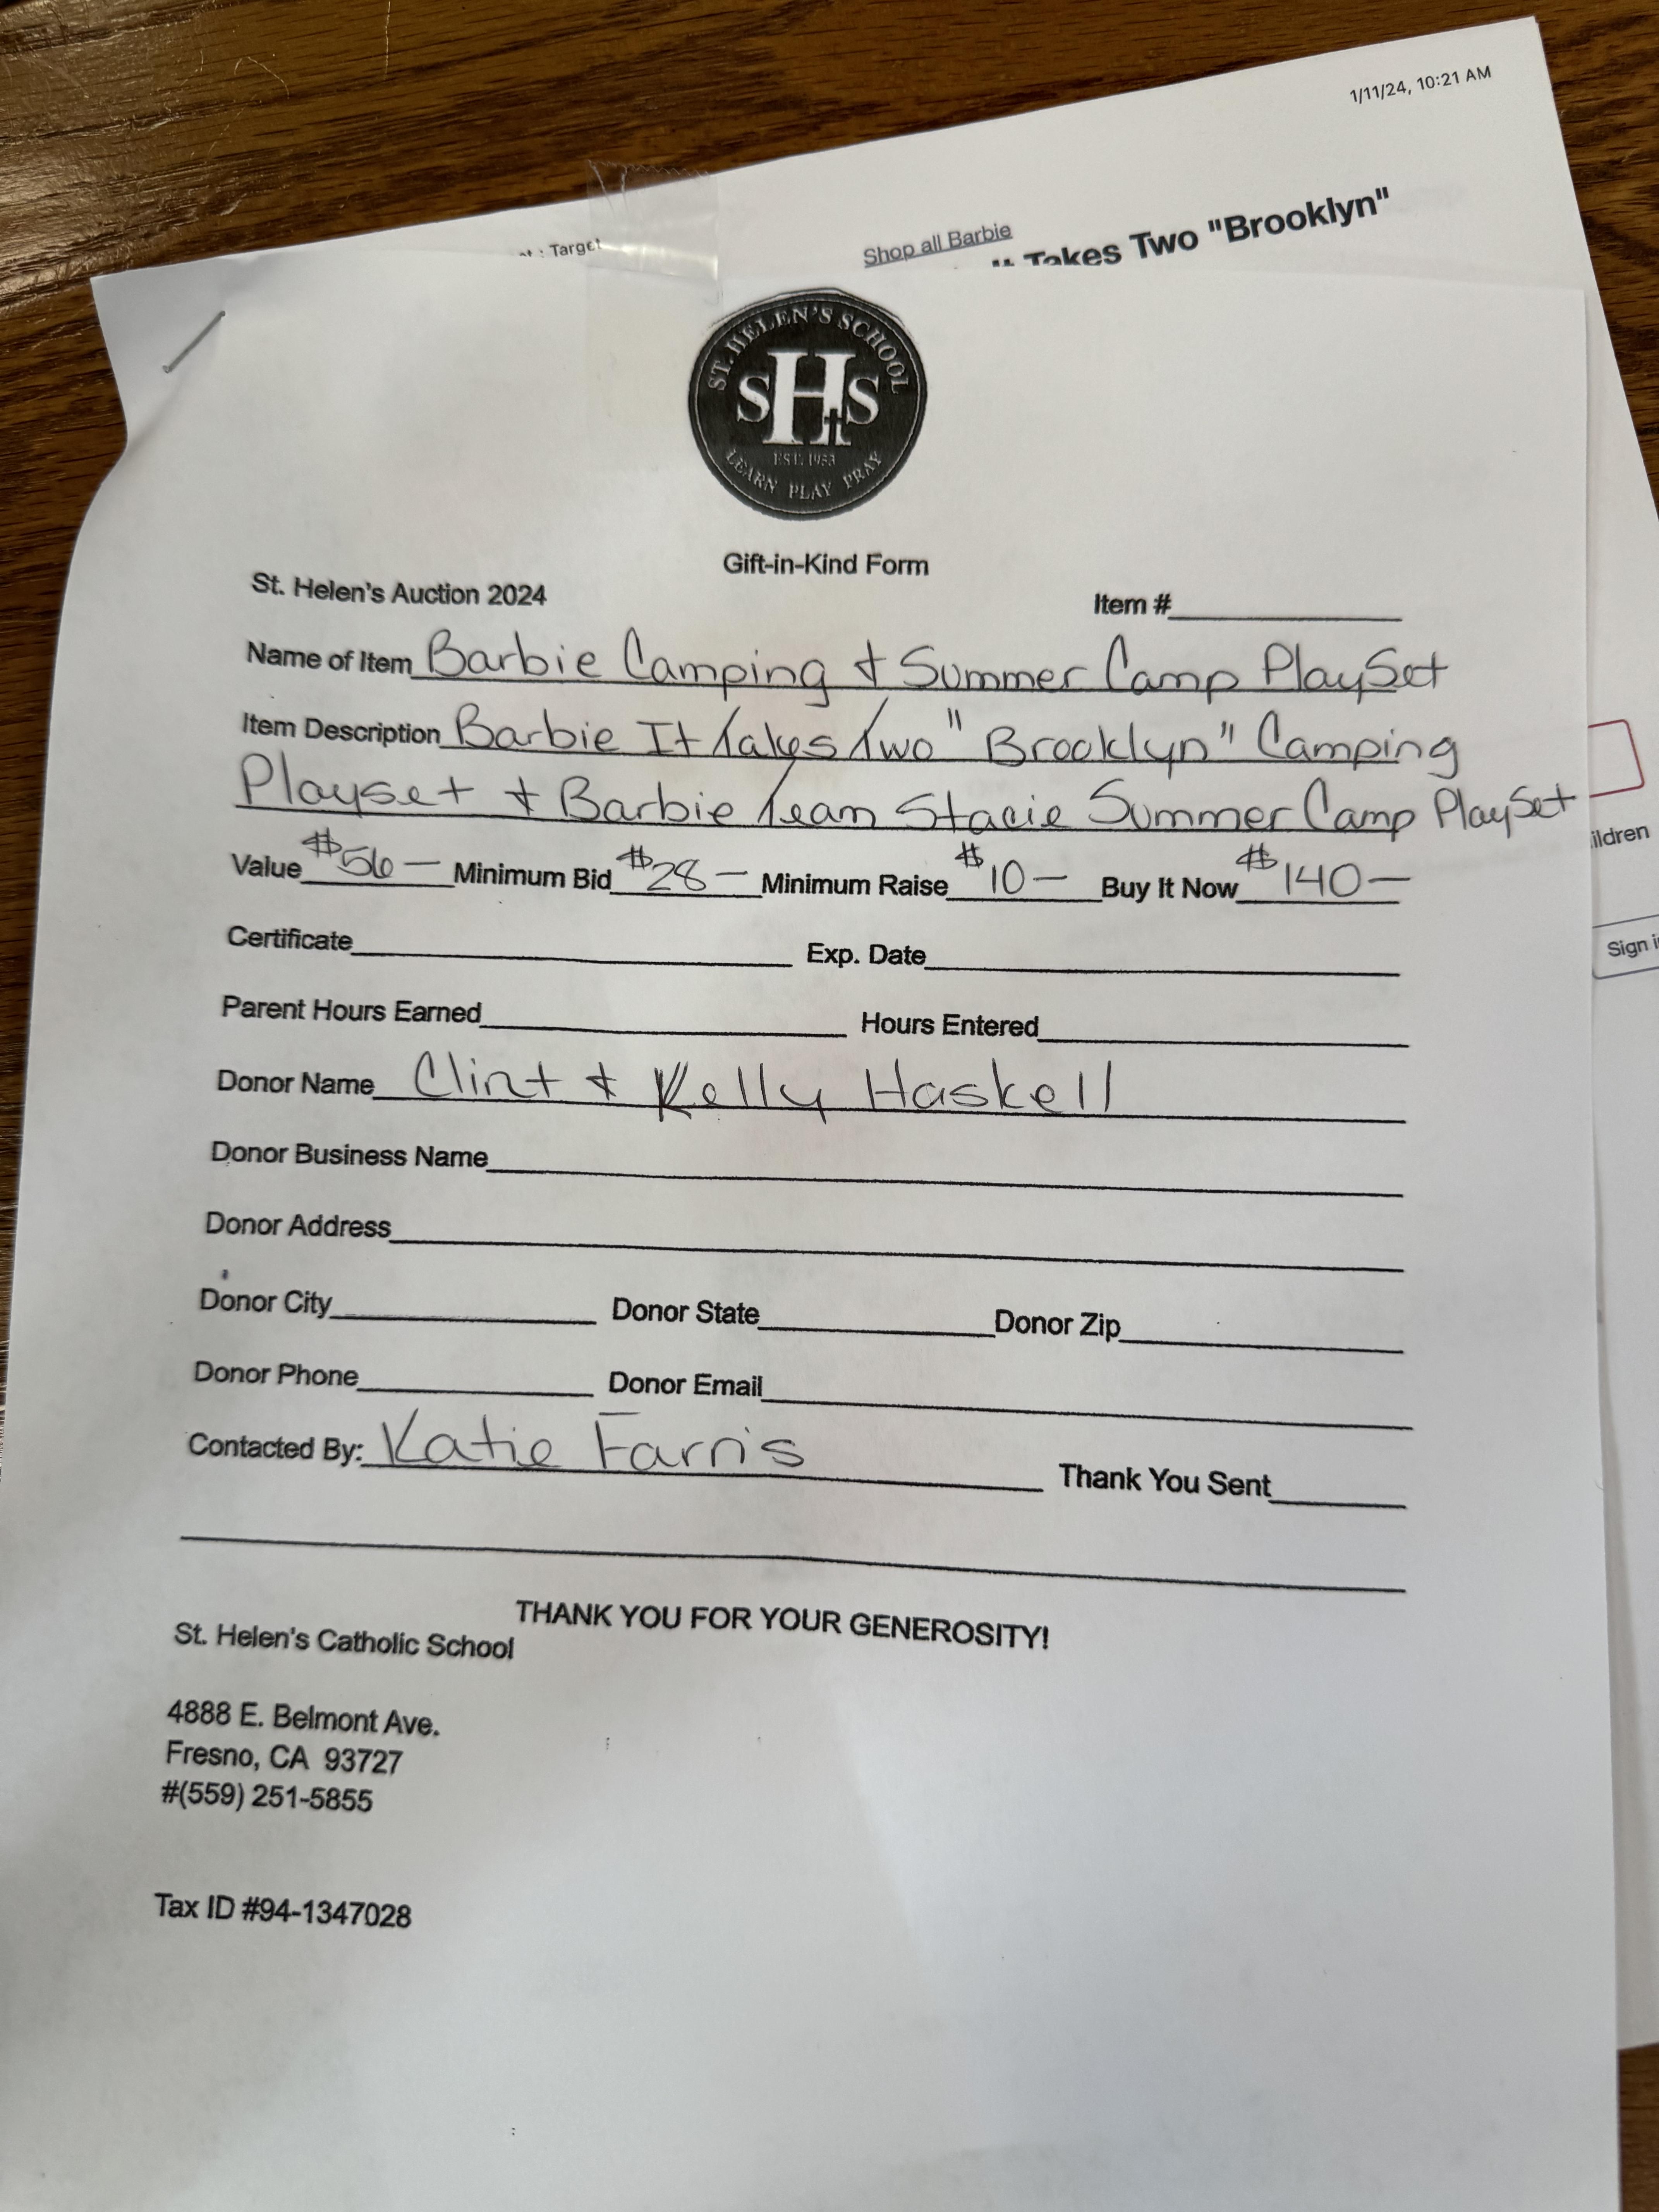 1/11/24, 10:21 AM
: Target
Shop all Barbie
Takes Two "Brooklyn"
ST. HELEN'S SCHOOL
SHS
EST. 1953
LEARN PLAY PRAY
Gift-in-Kind Form
St. Helen's Auction 2024 Item #
Name of Item Barbie Camping & Summer Camp PlaySet
Item Description Barbie It Takes Two "Brooklyn" Camping
Playset & Barbie Team Stacie Summer Camp PlaySet
Value $56— Minimum Bid $28— Minimum Raise $10— Buy It Now $140—
ildren
Certificate Exp. Date
Sign i
Parent Hours Earned Hours Entered
Donor Name Clint & Kelly Haskell
Donor Business Name
Donor Address
Donor City Donor State Donor Zip
Donor Phone Donor Email
Contacted By: Katie Farris Thank You Sent
THANK YOU FOR YOUR GENEROSITY!
St. Helen's Catholic School
4888 E. Belmont Ave.
Fresno, CA 93727
#(559) 251-5855
Tax ID #94-1347028